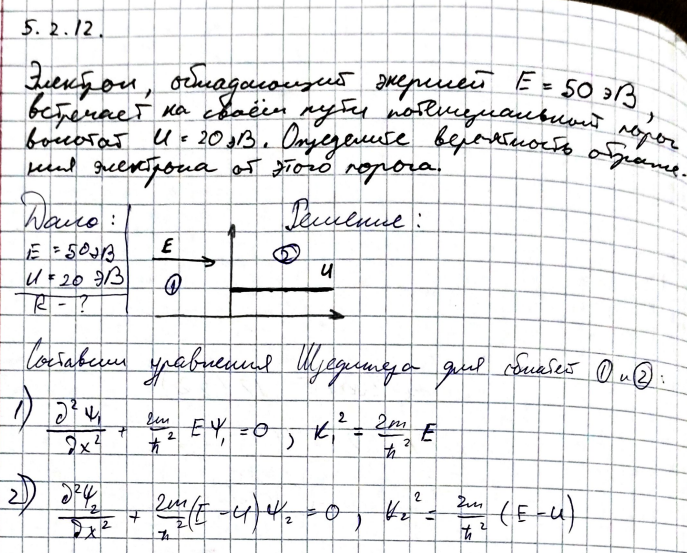 5.2.12.
Электрон, обладающий энергией E = 50 эВ,
встречает на своём пути потенциальный порог
высотой U = 20 эВ. Определите вероятность отраже-
ния электрона от этого порога.
Дано: Решение:
E = 50 эВ
U = 20 эВ
R - ?
E
① ② U
Составим уравнения Шрёдингера для областей ① и ②:
1) ∂²Ψ₁/∂x² + 2m/ħ² EΨ₁ = 0 ; K₁² = 2m/ħ² E
2) ∂²Ψ₂/∂x² + 2m/ħ² (E - U) Ψ₂ = 0 , K₂² = 2m/ħ² (E - U)